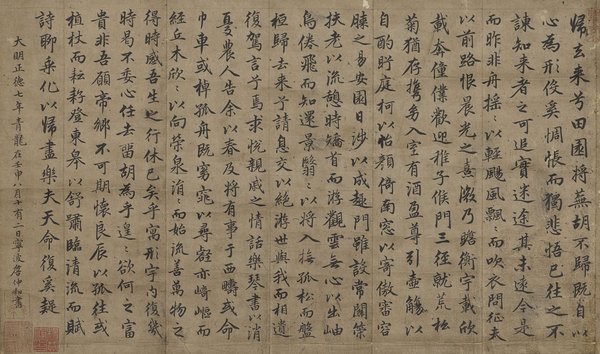 歸去来兮田園將蕪胡不歸既自以
心為形役奚惆悵而獨悲悟已往之不
諫知来者之可追實迷途其未遠今是
而昨非舟搖〻以輕颺風飄〻而吹衣問征夫
以前路恨晨光之熹微乃瞻衡宇載欣
載奔僮僕歡迎稚子候門三徑就荒松
菊猶存攜幼入室有酒盈尊引壺觴以
自酌眄庭柯以怡顔倚南窓以寄傲審容
膝之易安園日涉以成趣門雖設常關策
扶老以流憩時矯首而游觀雲無心以出岫
鳥倦飛而知還景翳〻以將入撫孤松而盤
桓歸去来兮請息交以絶游世與我而相遺
復駕言兮焉求悅親戚之情話樂琴書以消
憂農人告余以春及將有事于西疇或命
巾車或棹孤舟既窈窕以尋壑亦崎嶇而
經丘木欣〻以向榮泉涓〻而始流善萬物之
得時感吾生之行休已矣乎寓形宇内復幾
時曷不委心任去留胡為乎遑〻欲何之富
貴非吾願帝鄉不可期懷良辰以孤往或
植杖而耘耔登東皋以舒嘯臨清流而賦
詩聊乘化以歸盡樂夫天命復奚疑
大明正德七年青龍在壬申八月十有二日寧波詹仲和書